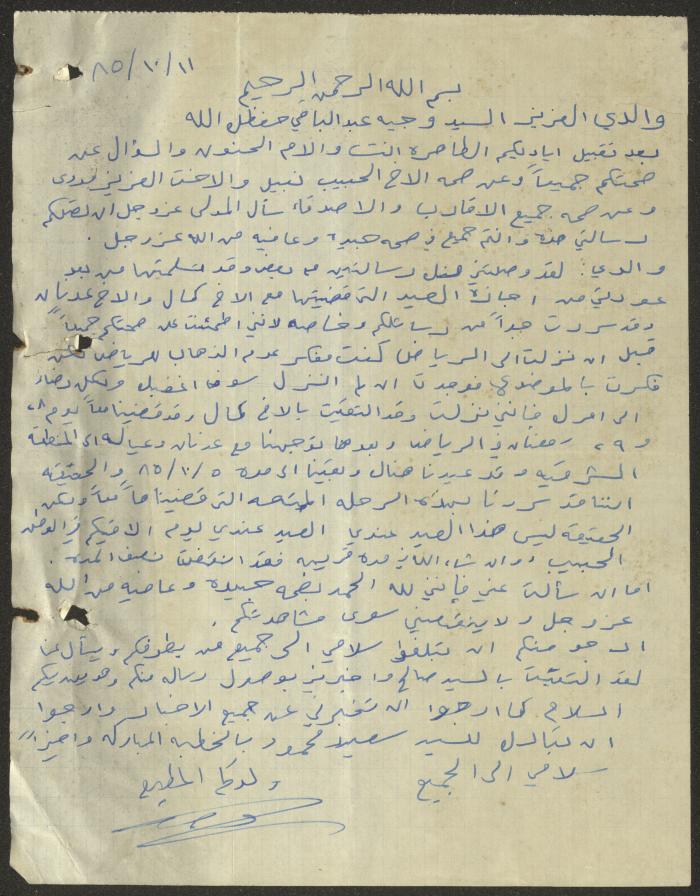 ٨٥/١٠/١١
بسم الله الرحمن الرحيم
والدي العزيز السيد وجيه عبد الباقي حفظك الله
بعد تقبيل اياديكم الطاهرة انت والام الحنون والسؤال عن
صحتكم جميعاً وعن صحة الاخ الحبيب نبيل والاخت العزيزة فدوى
وعن صحة جميع الاقارب والاصدقاء سأل المولى عز وجل ان تصلكم
رسالتي هذه وانتم جميع في صحه جيدة وعافيه من الله عز وجل .
والدي : لقد وصلتني منك رسالتين مع بعض وقد تسلمتها من بعد
عودتي من اجازة العيد التي قضيتها مع الاخ كمال والاخ عدنان
وقد سررت جداً من رسائلكم وخاصه لانني اطمئنت عن صحتكم جميعاً
قبل ان نزلت الى الرياض كنت مفكر عدم الذهاب للرياض لكن
فكرت بالموضوع فوجدت ان لم انزل سوف
الى فإنني نزلت وقد التقيت بالاخ كمال وقد قضينا معاً يوم ٢٨
و ٢٩ رمضان في الرياض وبعدها توجهنا مع عدنان وعياله الى المنطقة
الشرقيه وقد عيدنا هناك وبقينا الى مدة ٨٥/١٠/٥ والحقيقة
اننا قد سررنا بهذه الرحله التي قضيناها معاً ولكن
الحقيقة ليس هذا العيد عندي العيد عندي يوم الاقيكم في الوطن
الحبيب وان شاء الله في مدة قريبه فقد انقضت نصف المدة .
اما ان سألت عني فإنني لله الحمد بصحه جيدة وعافيه من الله
عز وجل ولا ينقصني سوى مشاهدتكم .
ارجو منكم ان تبلغوا سلامي الى جميع من بطرفكم ويسأل عنا
لقد التقيت بالسيد صالح واخبرني بوصول رساله منكم وهو يهديكم
السلام كما ارجوا ان تخبرني عن جميع الاخبار وارجوا
ان تبارك للسيد سعيد محمود بالخطبه المباركه واخيراً
سلامي الى الجميع
ولدكم المطيع